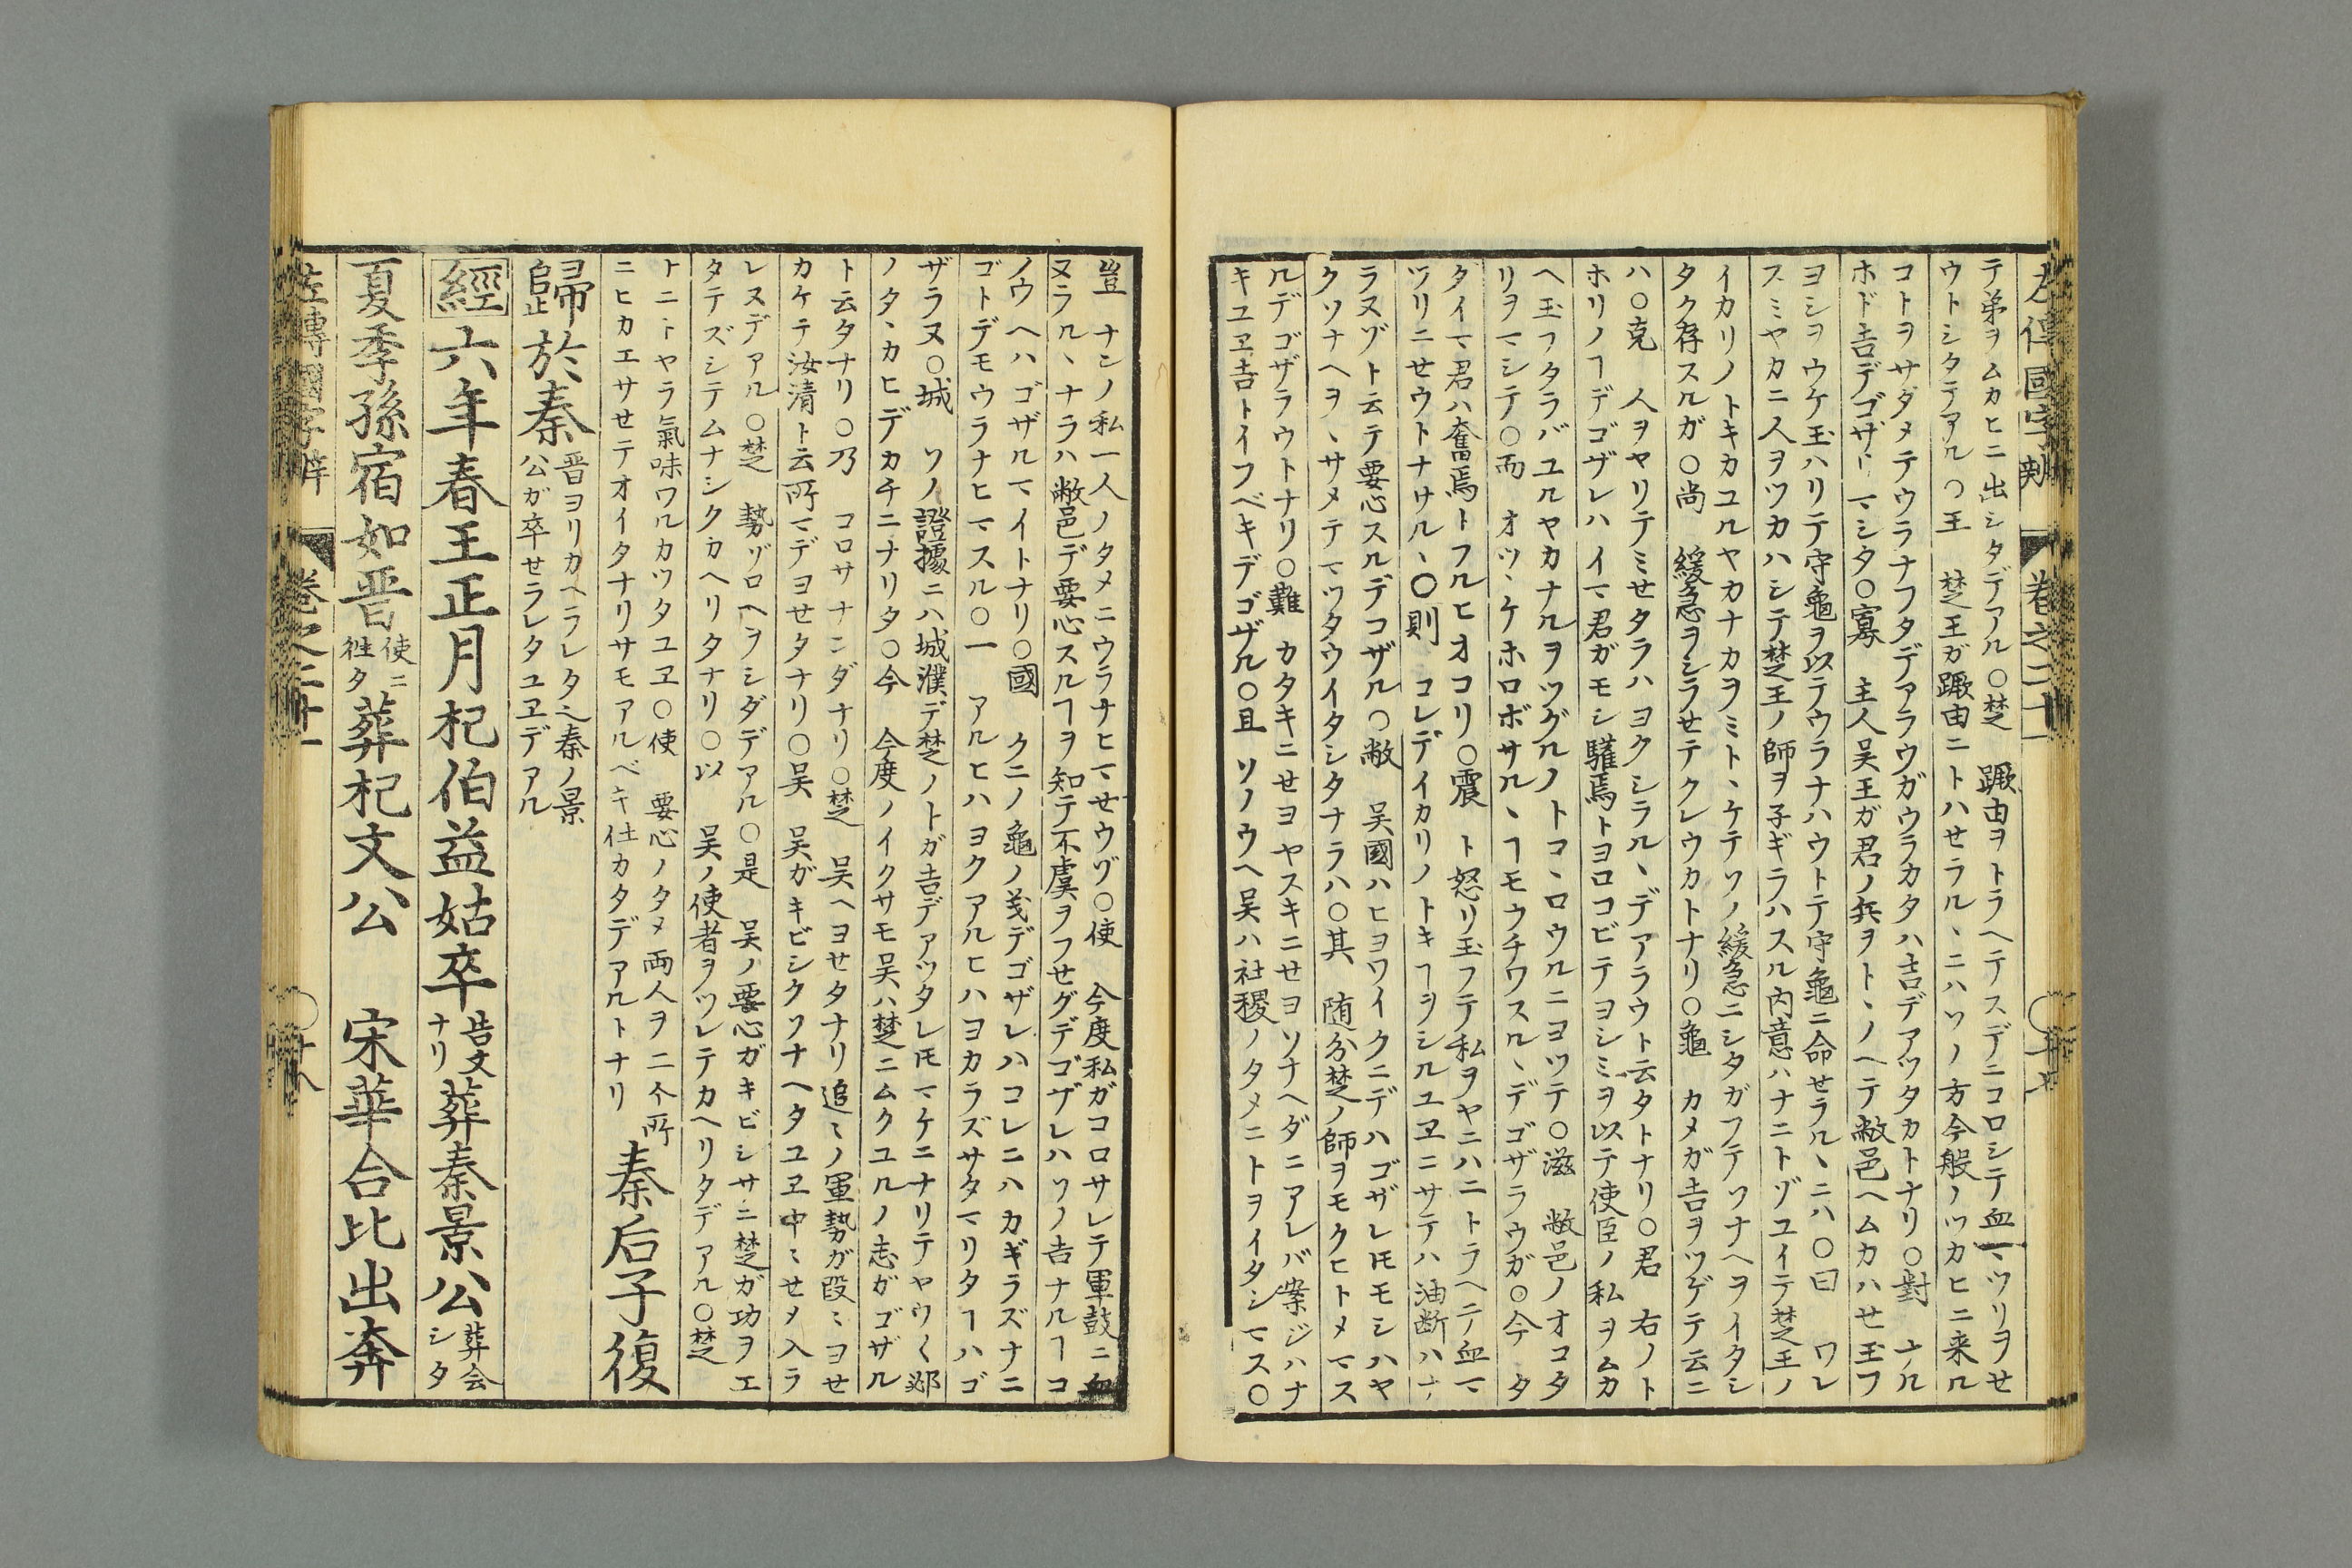 左傳國字辨 巻之二十一 〇十七
テ弟ヲムカヒニ出シタデアル〇楚 蹶由ヲトラヘテスデニコロシテ血マツリヲせ
ウトシタテアル〇王 楚王ガ蹶由ニトハせラルヽニハソノ方今般ノツカヒニ来ル
コトヲサダメテウラナフタデアラウガウラカタハ吉デアツタカトナリ〇對
ホド吉デゴザ マシタ〇寡 主人吴王ガ君ノ兵ヲトヽノヘテ敝邑ヘムカハせ玉フ
ヨシヲウケ玉ハリテ守龜ヲ以テウラナハウトテ守龜ニ命せラルヽニハ〇曰 ワレ
スミヤカニ人ヲツカハシテ楚王ノ師ヲ子ギラハスル内意ハナニトゾユイテ楚王ノ
イカリノトキカユルヤカナカヲミトヽケテソノ緩急ニシタガフテソナヘヲイタシ
タク存スルガ〇尚 緩急ヲシラせテクレウカトナリ〇龜 カメガ吉ヲツゲテ云ニ
ハ〇克 人ヲヤリテミせタラハヨクシラルヽデアラウト云タトナリ〇君 右ノト
ホリノヿデゴザレハイマ君ガモシ驩焉トヨロコビテヨシミヲ以テ使臣ノ私ヲムカ
ヘ玉フタラバユルヤカナルヲツグルノトコヽロウルニヨツテ〇滋 敝邑ノオコタ
リヲマシテ〇而 オツヽケホロボサルヽヿモウチワスルヽデゴザラウガ〇今 タ
ダイマ君ハ奮焉トフルヒオコリ〇震 ト怒リ玉フテ私ヲヤニハニトラヘテ血マ
ツリニせウトナサルヽ〇則 コレデイカリノトキヿヲシルユヱニサテハ油断ハナ
ラヌゾト云テ要心スルデコザル〇敝 吴國ハヒヨワイクニデハゴザレ𪜈モシハヤ
クソナヘヲヽサメテマツタウイタシタナラハ〇其 随分楚ノ師ヲモクヒトメマス
ルデゴザラウトナリ〇難 カタキニせヨヤスキニせヨソナヘダニアレバ案ジハナ
キユヱ吉トイフベキデゴザル〇且 ソノウヘ吴ハ社稷ノタメニトヲイタシマス〇
豈 ナシノ私一人ノタメニウラナヒマせウゾ〇使 今度私ガコロサレテ軍鼓ニ血
ヌラルヽナラハ敝邑デ要心スルヿヲ知テ不虞ヲフせグデゴザレハソノ吉ナルヿコ
ノウヘハゴザルマイトナリ〇國 クニノ龜ノ义デゴザレハコレニハカギラズナニ
ゴトデモウラナヒマスル〇一 アルヒハヨクアルヒハヨカラズサタマリタヿハゴ
ザラヌ〇城 ソノ證據ニハ城濮デ楚ノトガ吉デアツタレ𪜈マケニナリテヤウ〱邲
ノタヽカヒデカチニナリタ〇今 今度ノイクサモ吴ハ楚ニムクユルノ志ガゴザル
ト云タナリ〇乃 コロサナンダナリ〇楚 吴ヘヨせタナリ追〻ノ軍勢ガ段〻ヨせ
カケテ汝清ト云所マデヨせタナリ〇吴 吴ガキビシクソナヘタユヱ中〻せメ入ラ
レヌデアル〇楚 勢ゾロヘヲシダデアル〇是 吴ノ要心ガキビシサニ楚ガ功ヲエ
タテズシテムナシクカヘリタナリ〇以 吴ノ使者ヲツレテカヘリタデアル〇楚
トニトヤラ氣味ワルカツタユヱ〇使 要心ノタメ両人ヲ二个所
ニヒカエサせテオイタナリサモアルベキ仕カタデアルトナリ 秦后子復
歸於秦 晋ヨリカヘラレタ之秦ノ景公ガ卒せラレタユヱデアル
經六年春王正月杞伯益姑卒 告文ナリ 葬秦景公 葬会シタ
夏季孫宿如晋 使ニ徃タ 葬杞文公 宋華合比出奔
左傳國字辨 巻之二十一 〇十八